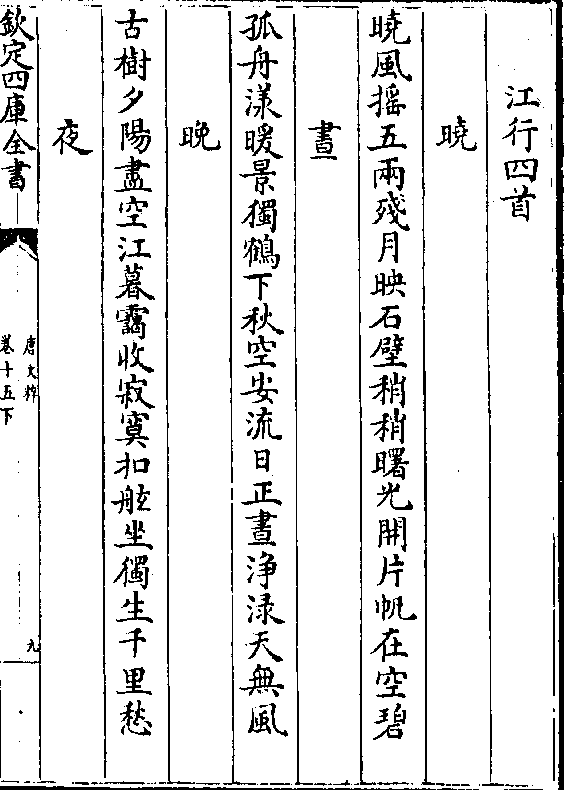 江行四首
曉
曉風搖五兩殘月映石壁稍稍曙光開片帆在空碧
晝
孤舟漾暖景獨鶴下秋空安流日正晝浄渌天無風
晚
古樹夕陽盡空江暮靄收寂寞扣舷坐獨生千里愁
夜
欽定四庫全書
唐文粹
卷十五下
九